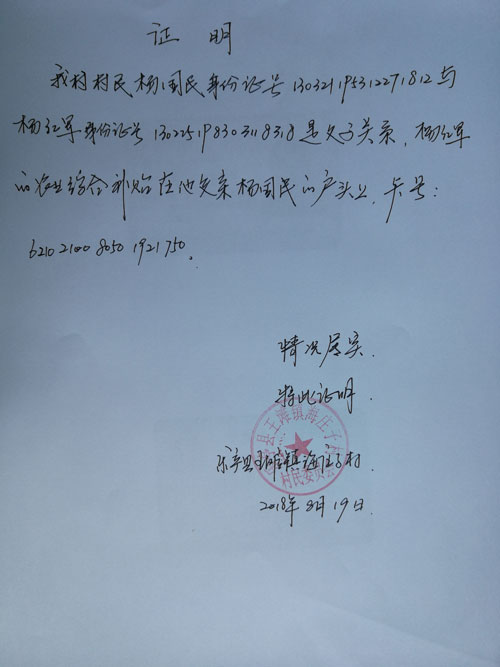 证 明
我村村民杨国民身份证号130321195312271812与
杨红军身份证号130225198303118318是父子关系,杨红军
的农业综合补贴在他父亲杨国民的户头上,卡号:
6210 2100 8050 1921 750。
情况属实.
特此证明
乐亭县王滩镇海庄子村
2018年8月19日.
县王滩镇海庄子
村民委员会